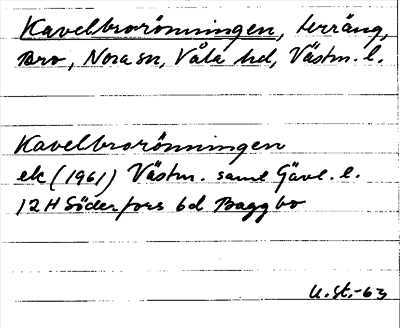 Kavelbrorönningen, terräng,
Bro, Nora sn, Våla hd, Västm. l.
Kavelbrorönningen
ek (1961) Västm. saml Gävl. l.
12H Söderfors 6d Baggbo
U. St. -63